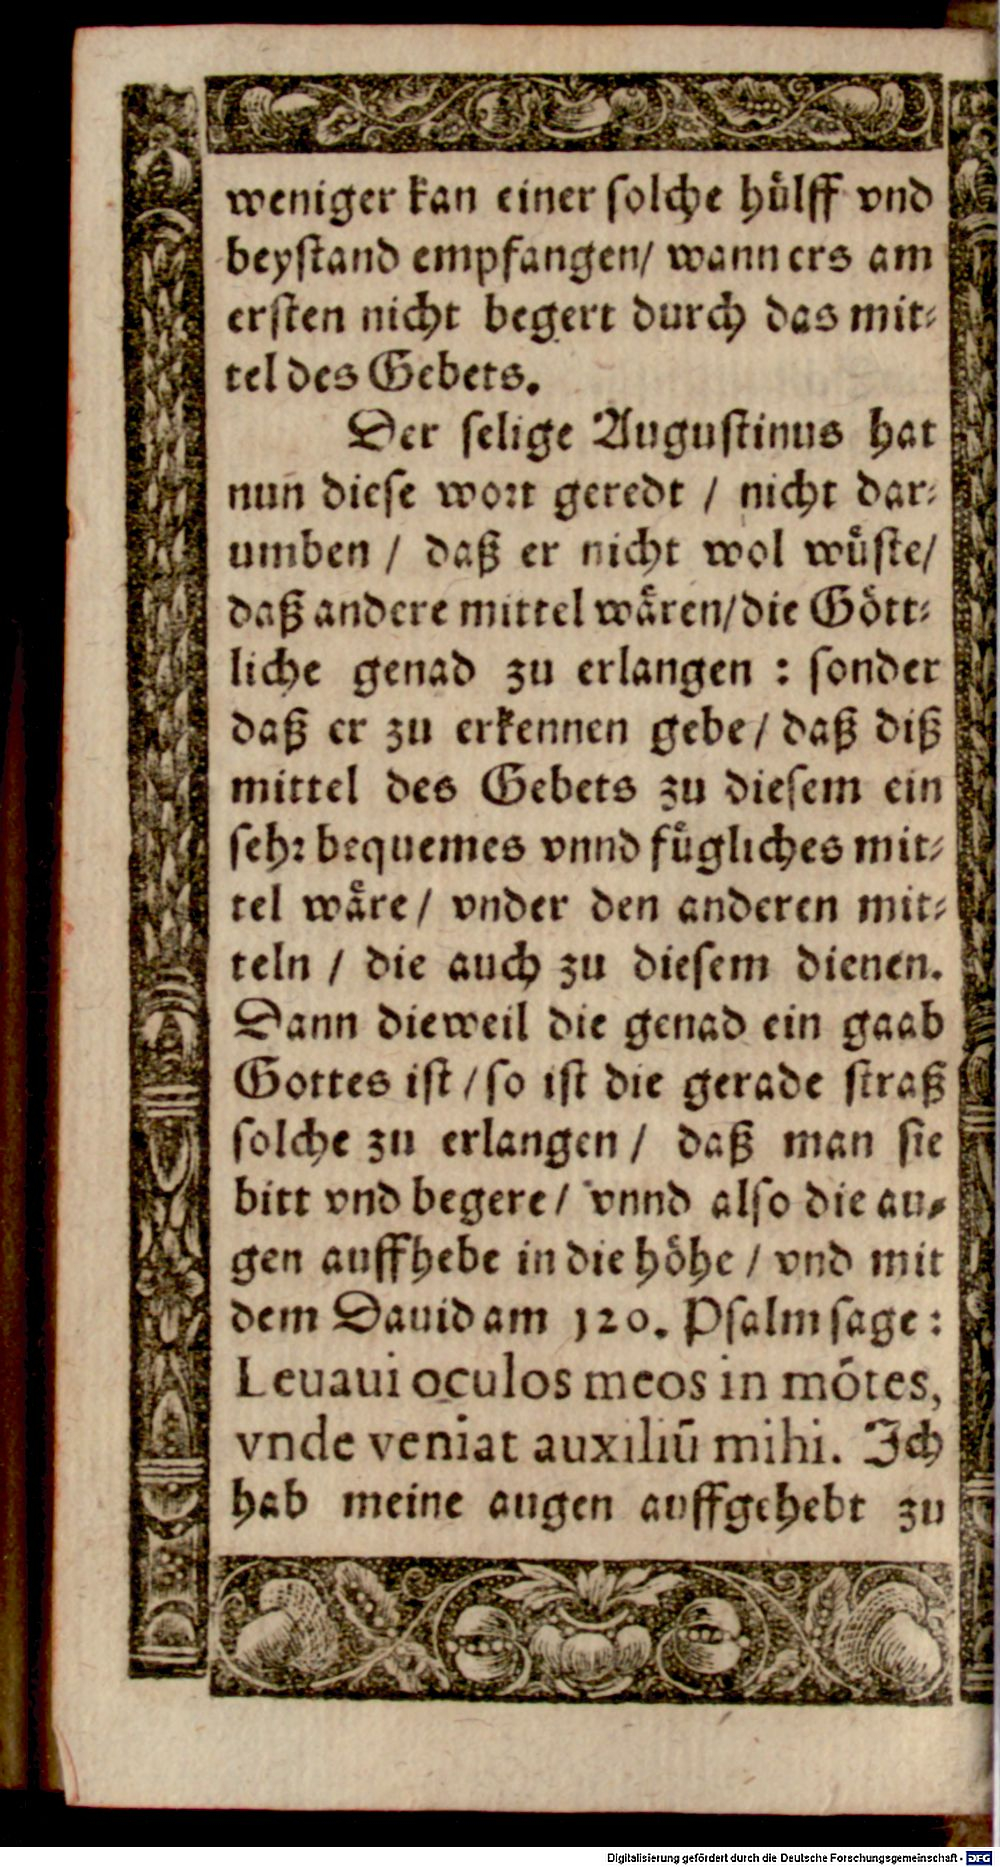 weniger kan einer solche hülff vnd
beystand empfangen/ wann ers am
ersten nicht begert durch das mit⸗
tel des Gebets.
Der selige Augustinus hat
nun diese wort geredt / nicht dar⸗
umben / daß er nicht wol wüste/
daß andere mittel wären/die Gött⸗
liche genad zu erlangen : sonder
daß er zu erkennen gebe/ daß diß
mittel des Gebets zu diesem ein
sehr bequemes vnnd fügliches mit⸗
tel wäre/ vnder den anderen mit⸗
teln / die auch zu diesem dienen.
Dann dieweil die genad ein gaab
Gottes ist/so ist die gerade straß
solche zu erlangen/ daß man sie
bitt vnd begere/ vnnd also die au⸗
gen auffhebe in die höhe/ vnd mit
dem Dauid am 120. Psalm sage:
Leuaui oculos meos in mõtes,
vnde veniat auxiliũ mihi. Ich
hab meine augen auffgehebt zu
Digitalisierung gefördert durch die Deutsche Forschungsgemeinschaft - DFG